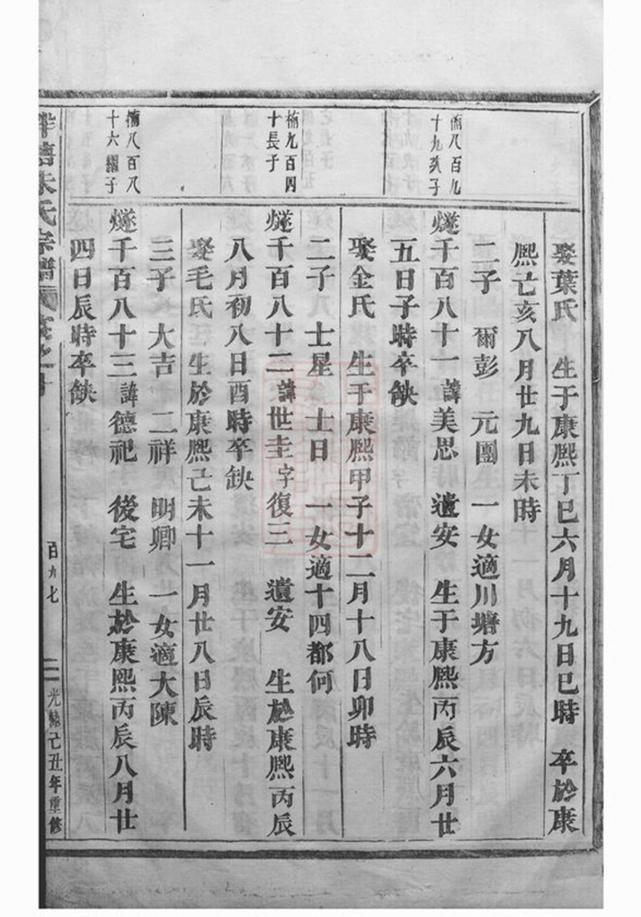 娶葉氏 生于康熙丁巳六月十九日巳時 卒於康
熙己亥八月廿九日未時
二子 爾彭 元團 一女適川塘方
備八百九
十九亥子
燧千百八十一 諱美思 遺安 生于康熙丙辰六月廿
五日子時卒缺
娶金氏 生于康熙甲子十二月十八日卯時
二子 士星 士日 一女適十四都何
備九百四
十長子
燧千百八十二 諱世圭字復三 遺安 生於康熙丙辰
八月初八日酉時卒缺
娶毛氏 生於康熙己未十一月廿八日辰時
三子 大吉 二祥 明卿 一女適大陳
備八百八
十六繼子
燧千百八十三 諱德祀 後宅 生於康熙丙辰八月廿
四日辰時卒缺
塘朱氏宗譜
百九七
光緒己丑年重修